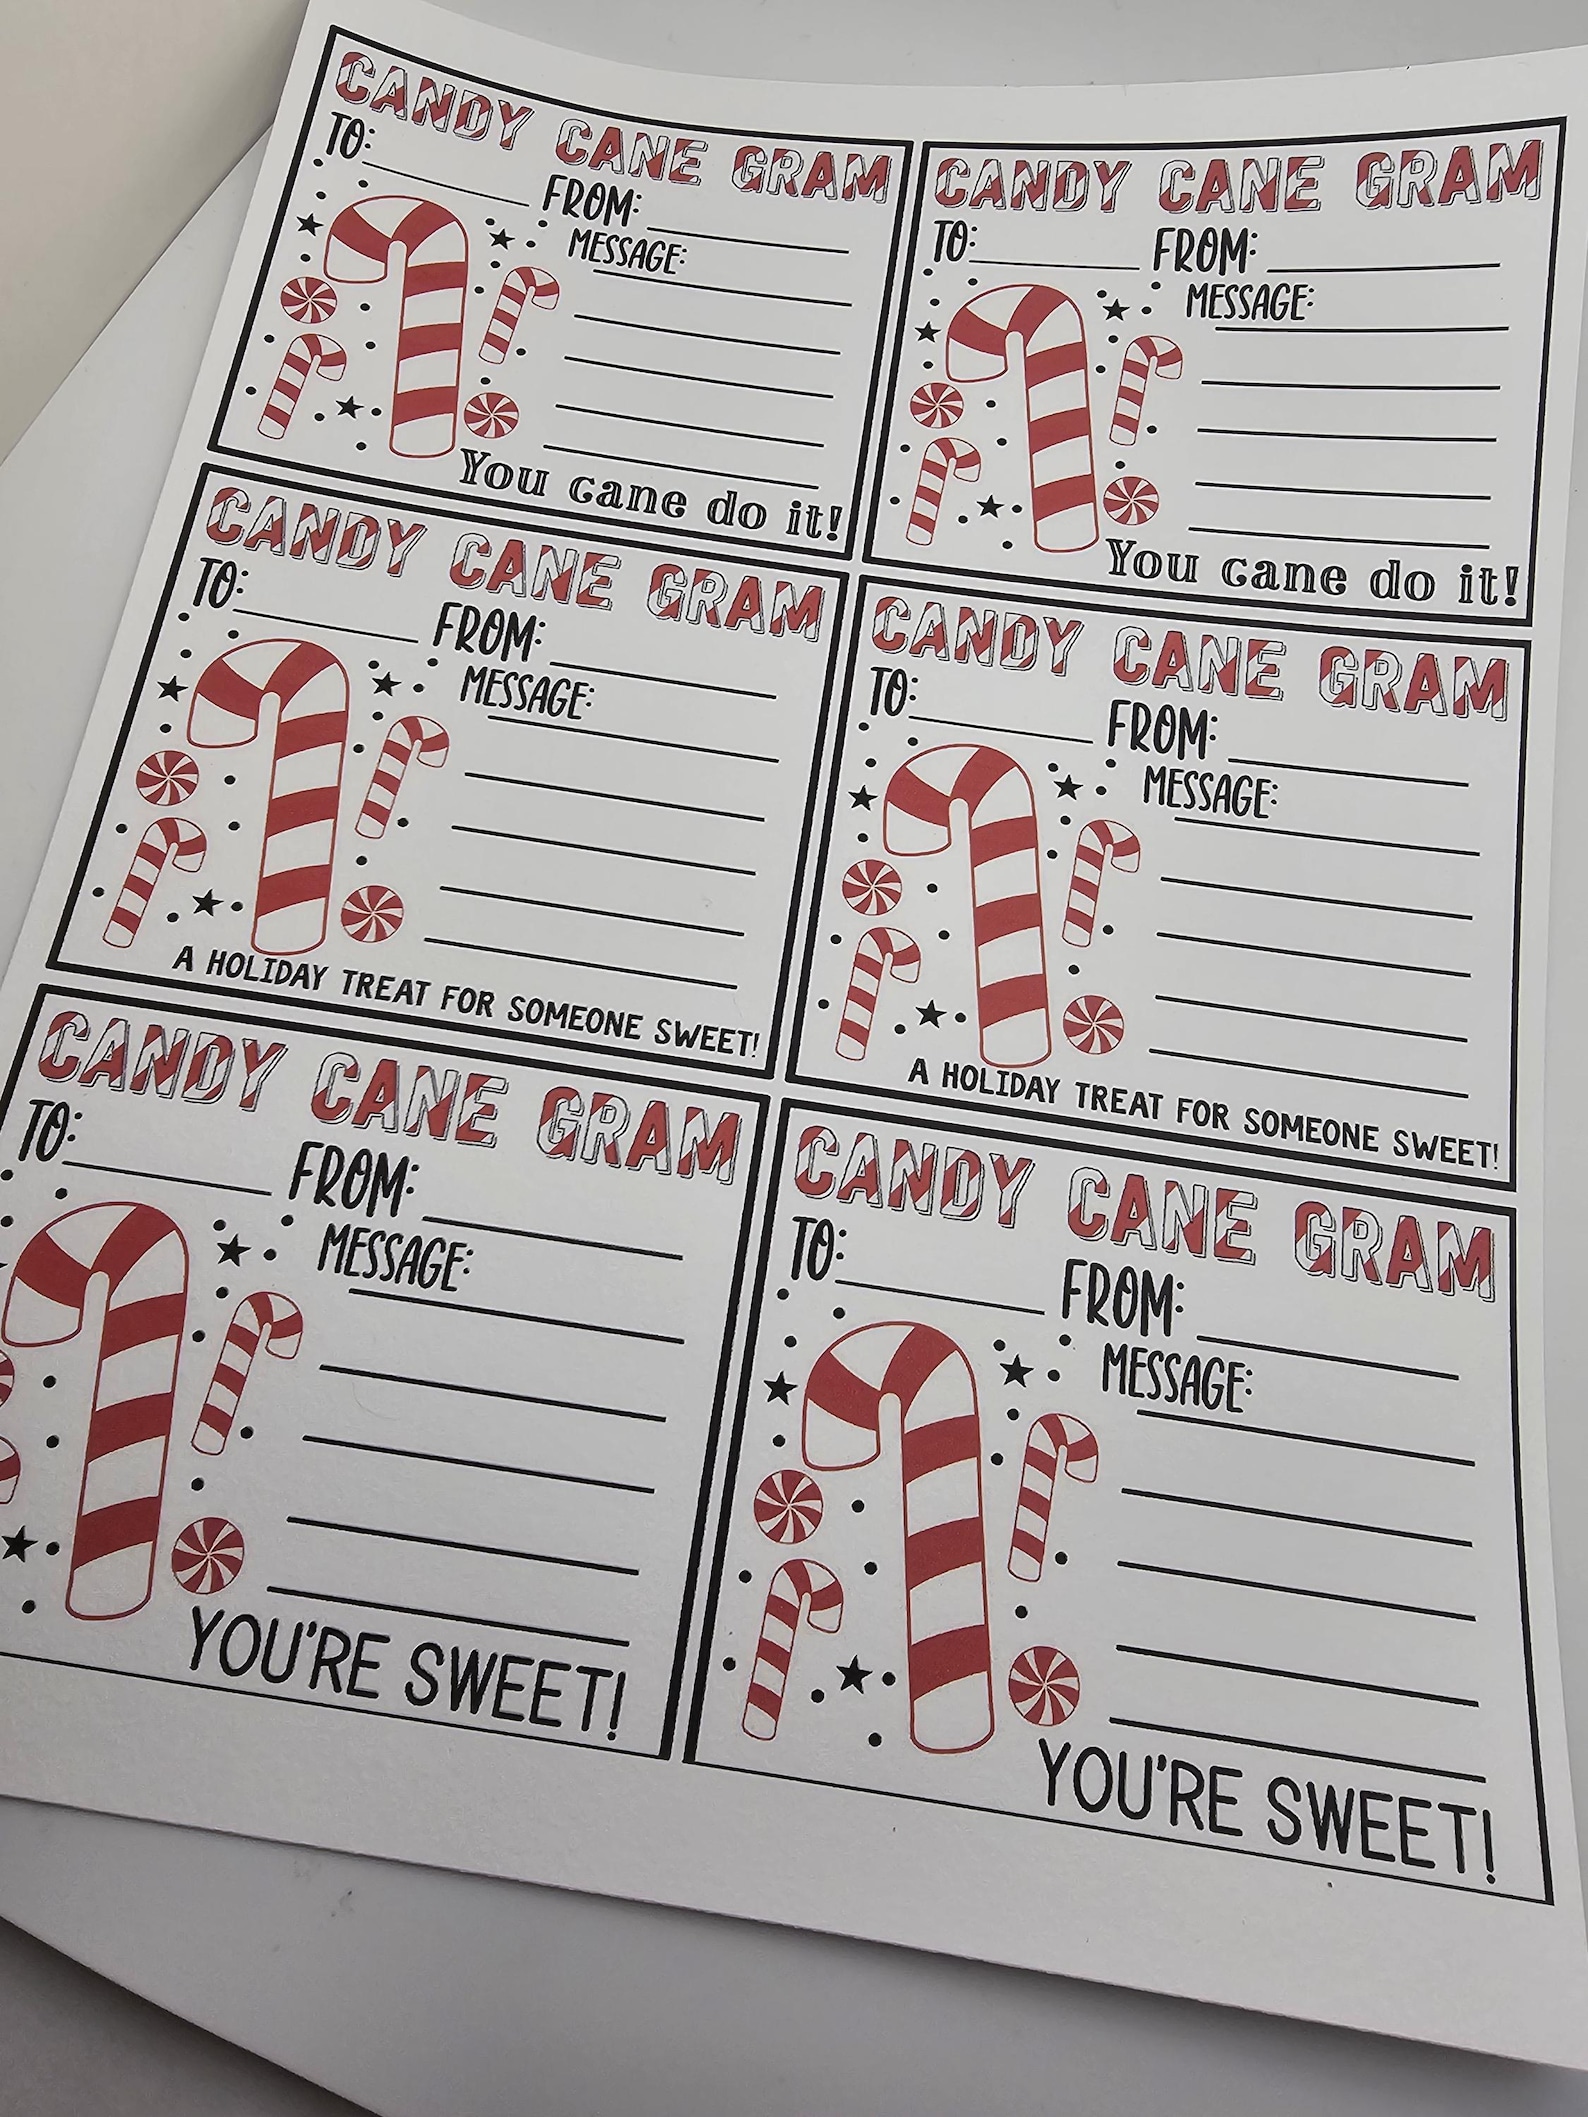 CANDY CANE GRAM
TO:
FROM:
MESSAGE:
You cane do it!
CANDY CANE GRAM
TO: FROM:
MESSAGE:
You cane do it!
CANDY CANE GRAM
TO:
FROM:
MESSAGE:
A HOLIDAY TREAT FOR SOMEONE SWEET!
CANDY CANE GRAM
TO:
FROM:
MESSAGE:
A HOLIDAY TREAT FOR SOMEONE SWEET!
CANDY CANE GRAM
TO:
FROM:
MESSAGE:
YOU'RE SWEET!
CANDY CANE GRAM
TO:
FROM:
MESSAGE:
YOU'RE SWEET!